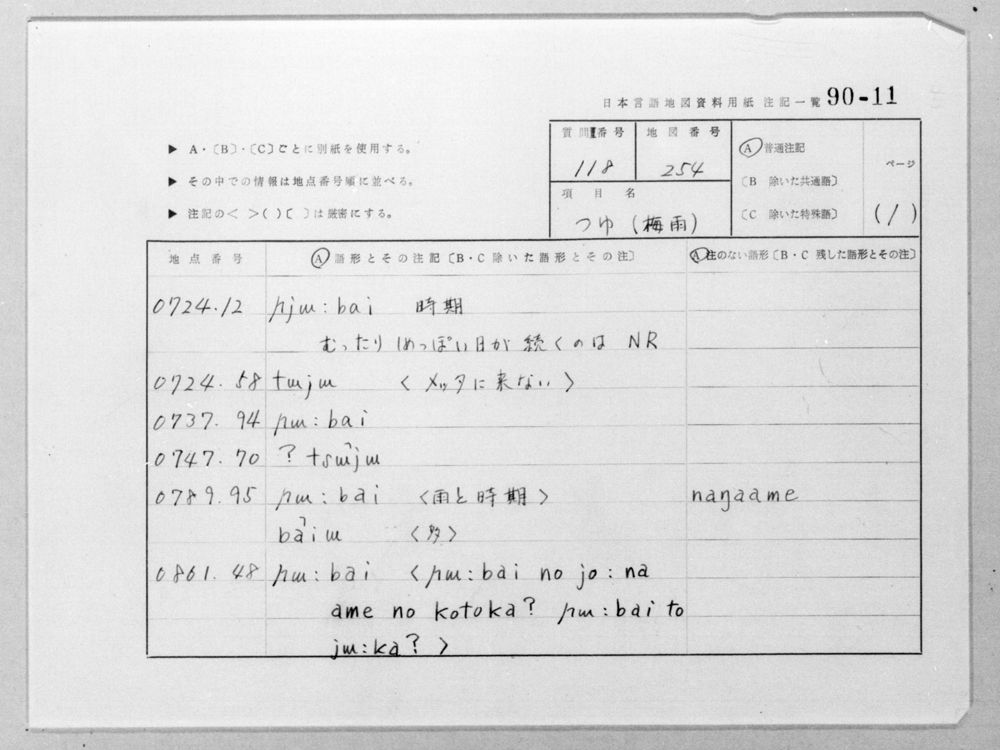 日本言語地図資料用紙 注記一覧 90-11
▶ A・〔B〕・〔C〕ごとに別紙を使用する。
▶ その中での情報は地点番号順に並べる。
▶ 注記の< >( )〔 〕は厳密にする。
質問番号 地図番号
118 254
項目名
つゆ (梅雨)
Ⓐ 普通注記
〔B 除いた共通語〕
〔C 除いた特殊語〕
ページ
(1)
地点番号 Ⓐ 語形とその注記〔B・C 除いた語形とその注〕 Ⓐ 注のない語形〔B・C 残した語形とその注〕
0724.12 ɲjɯ:bai 時期
むったりしめっぽい日が続くのは NR
0724.58 tɯjɯ < メッタに来ない >
0737.94 ɲɯ:bai
0747.70 ? tsɯ̃jɯ
0789.95 ɲɯ:bai <雨と時期> naŋaame
baˀiɯ <多>
0861.48 ɲɯ:bai < ɲɯ:bai no jo:na
ame no kotoka? ɲɯ:bai to
jɯ:ka? >